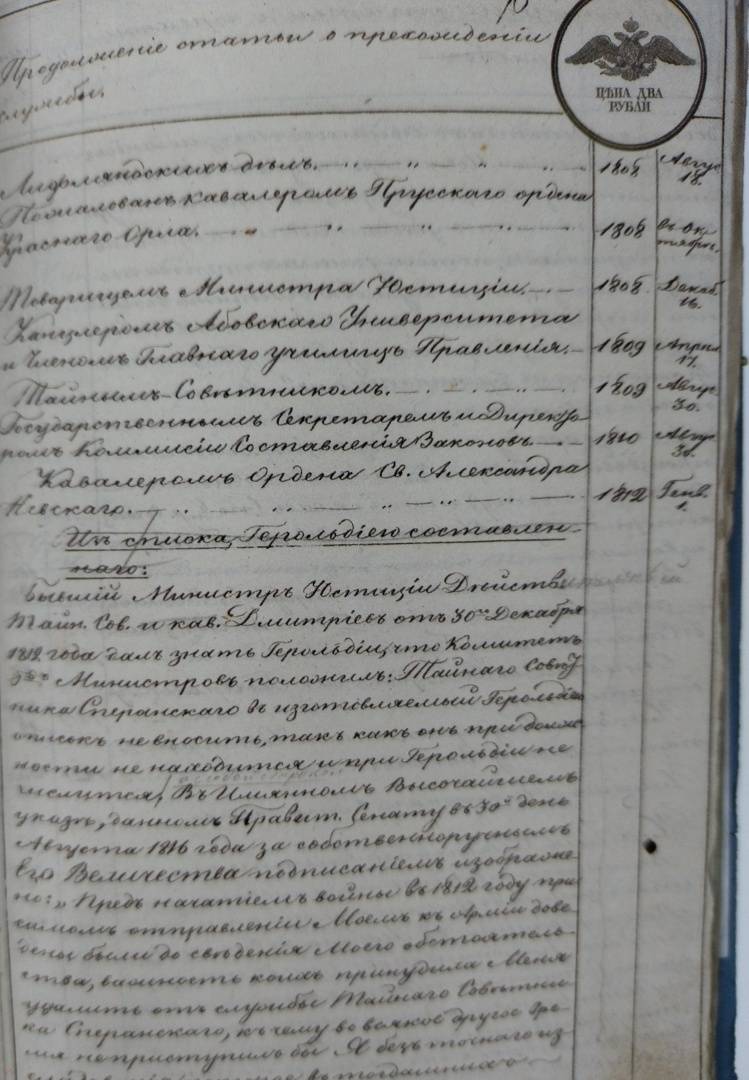 Продолженіе статьи о прехожденіи
службы.
ЦѢНА ДВА
РУБЛИ
Лифляндскихъ дѣлъ. 1808 Авгус. 18.
Пожалованъ кавалеромъ Прусскаго ордена
Краснаго Орла. 1808 въ Октябрѣ.
Товарищемъ Министра Юстиціи. 1808 Декаб. 16.
Канцлеромъ Абовскаго Университета
и Членомъ Главнаго училищъ Правленія. 1809 Апрѣл. 17.
Тайнымъ Совѣтникомъ. 1809 Авгус. 30.
Государственнымъ Секретаремъ и Директо-
ромъ Коммисіи Составленія Законовъ 1810 Авгус.
Кавалеромъ Ордена Св. Александра
Невскаго. 1812 Генв. 1.
Изъ списка, Герольдіею составлен-
наго:
Бывшій Министръ Юстиціи Дѣйстви
Тайн. Сов. и кав. Дмитріевъ отъ 30 Декабря
1812 года далъ знать Герольдіи, что Комитетъ
Министровъ положилъ: Тайнаго Совѣт-
ника Сперанскаго въ изготовляемый Герольдіею
списокъ не вносить, такъ какъ онъ при долж-
ности не находится и при Герольдіи не
числится, Въ Имянномъ Высочайшемъ
указѣ, данномъ Правит. Сенату въ 30 день
Августа 1816 года за собственноручнымъ
Его Величества подписаніемъ изображе-
но: „Предъ начатіемъ войны въ 1812 году при
самомъ отправленіи Моемъ къ Арміи дове-
дены были до свѣденія Моего обстоятель-
ства, важность коихъ принудила Меня
удалить отъ службы Тайнаго Совѣтни-
ка Сперанскаго, къ чему во всякое другое вре-
мя не приступилъ бы Я безъ точнаго из-
въ тогдашнихъ